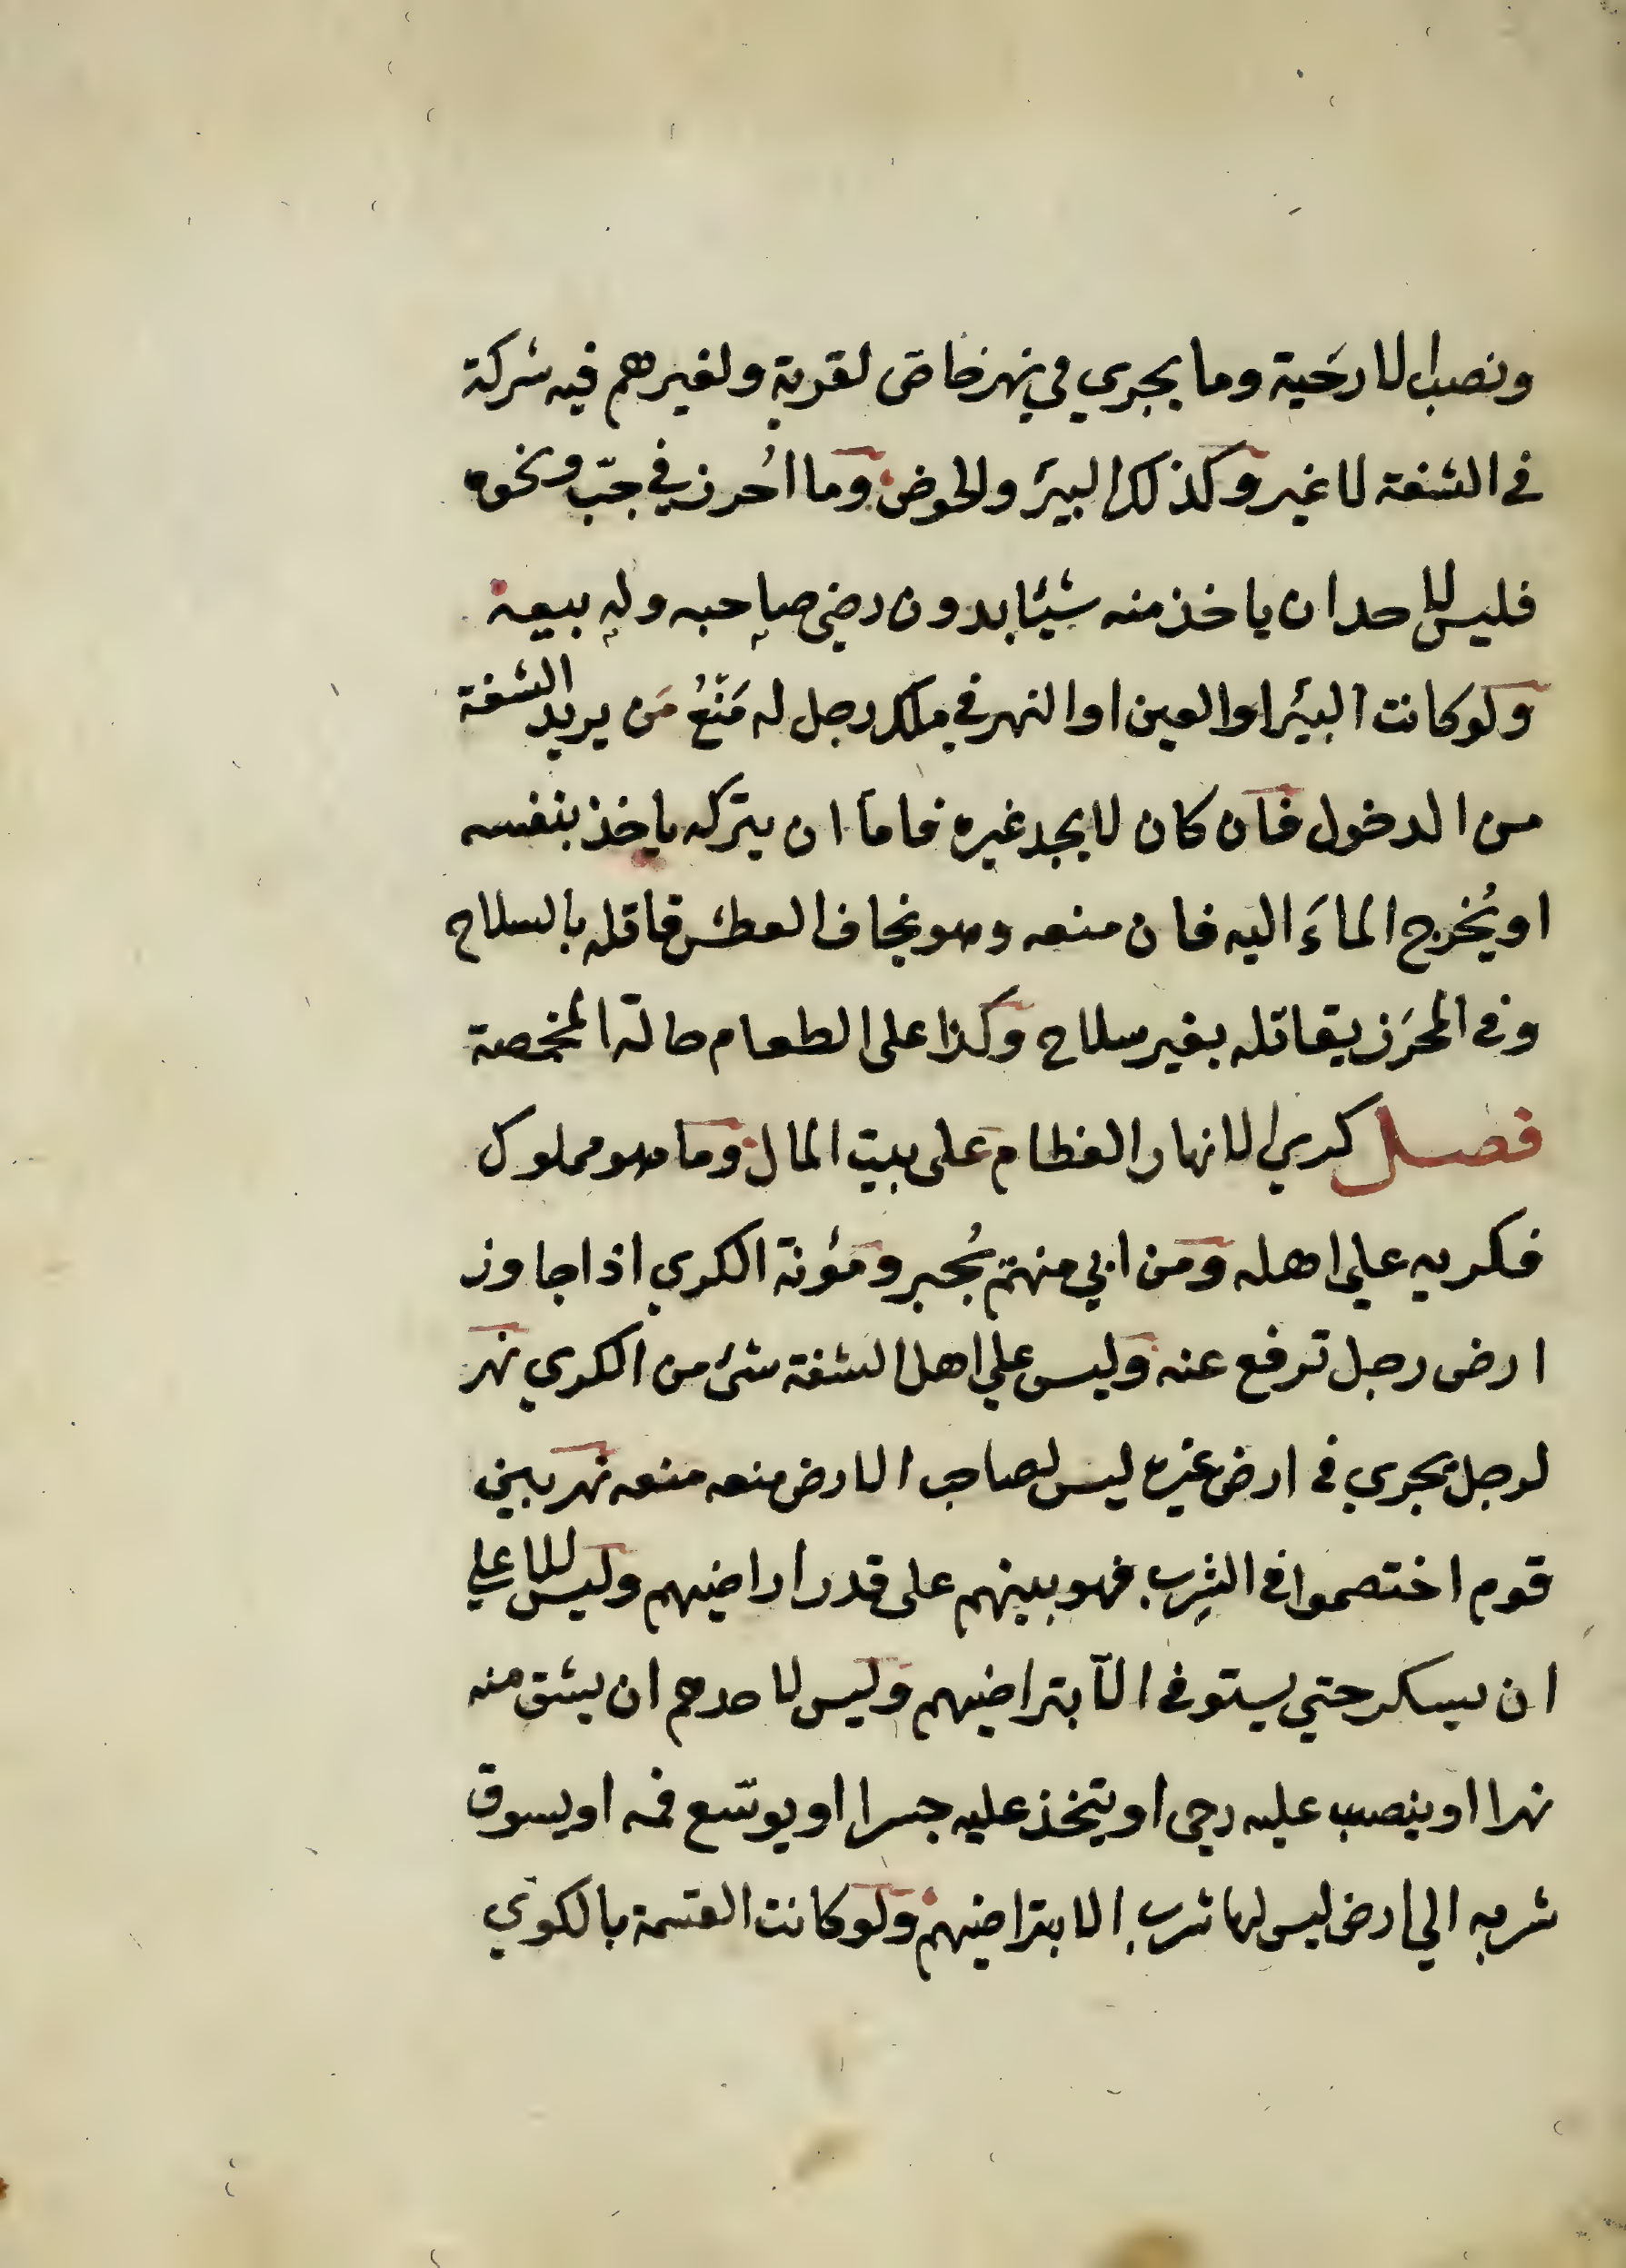 ونصب الارحية وما يجري في نهر خاص لقرية ولغيرهم فيه شركة
في الشفة لا غير وكذلك البير والحوض وما اُحرز في جبّ ونحوه
فليس لاحد ان ياخذ منه شيئا بدون رضى صاحبه وله بيعه
ولو كانت البئر او العين او النهر في ملك رجل له مَنْعُ مَن يريد الشفة
من الدخول فان كان لا يجد غيره فاما ان يتركه ياخذ بنفسه
او يُخرج الماءَ اليه فان منعه وهو يخاف العطش قاتله بالسلاح
وفى المحرَز يقاتله بغير سلاح وكذا على الطعام حالة المخمصة
فصل كري الانهار العظام على بيت المال وما هو مملوك
فكريه على اهله ومن ابي منهم يُجبر ومؤنة الكري اذا جاوز
ارض رجل ترفع عنه وليس علي اهل الشفة شئ من الكري نهر
لرجل يجري فى ارض غيره ليس لصاحب الارض منعه منعه نهر بين
قوم اختصموا فى الشِرب فهو بينهم على قدر اراضيهم وليس للاعلي
ان يسكر حتي يستوفى الّا بتراضيهم وليس لاحدهم ان يشق منه
نهرا او ينصب عليه رحى او يتخذ عليه جسرا او يوسّع فمه او يسوق
شربه الي ارض ليس لها شرب الا بتراضيهم ولو كانت القسمة بالكوي